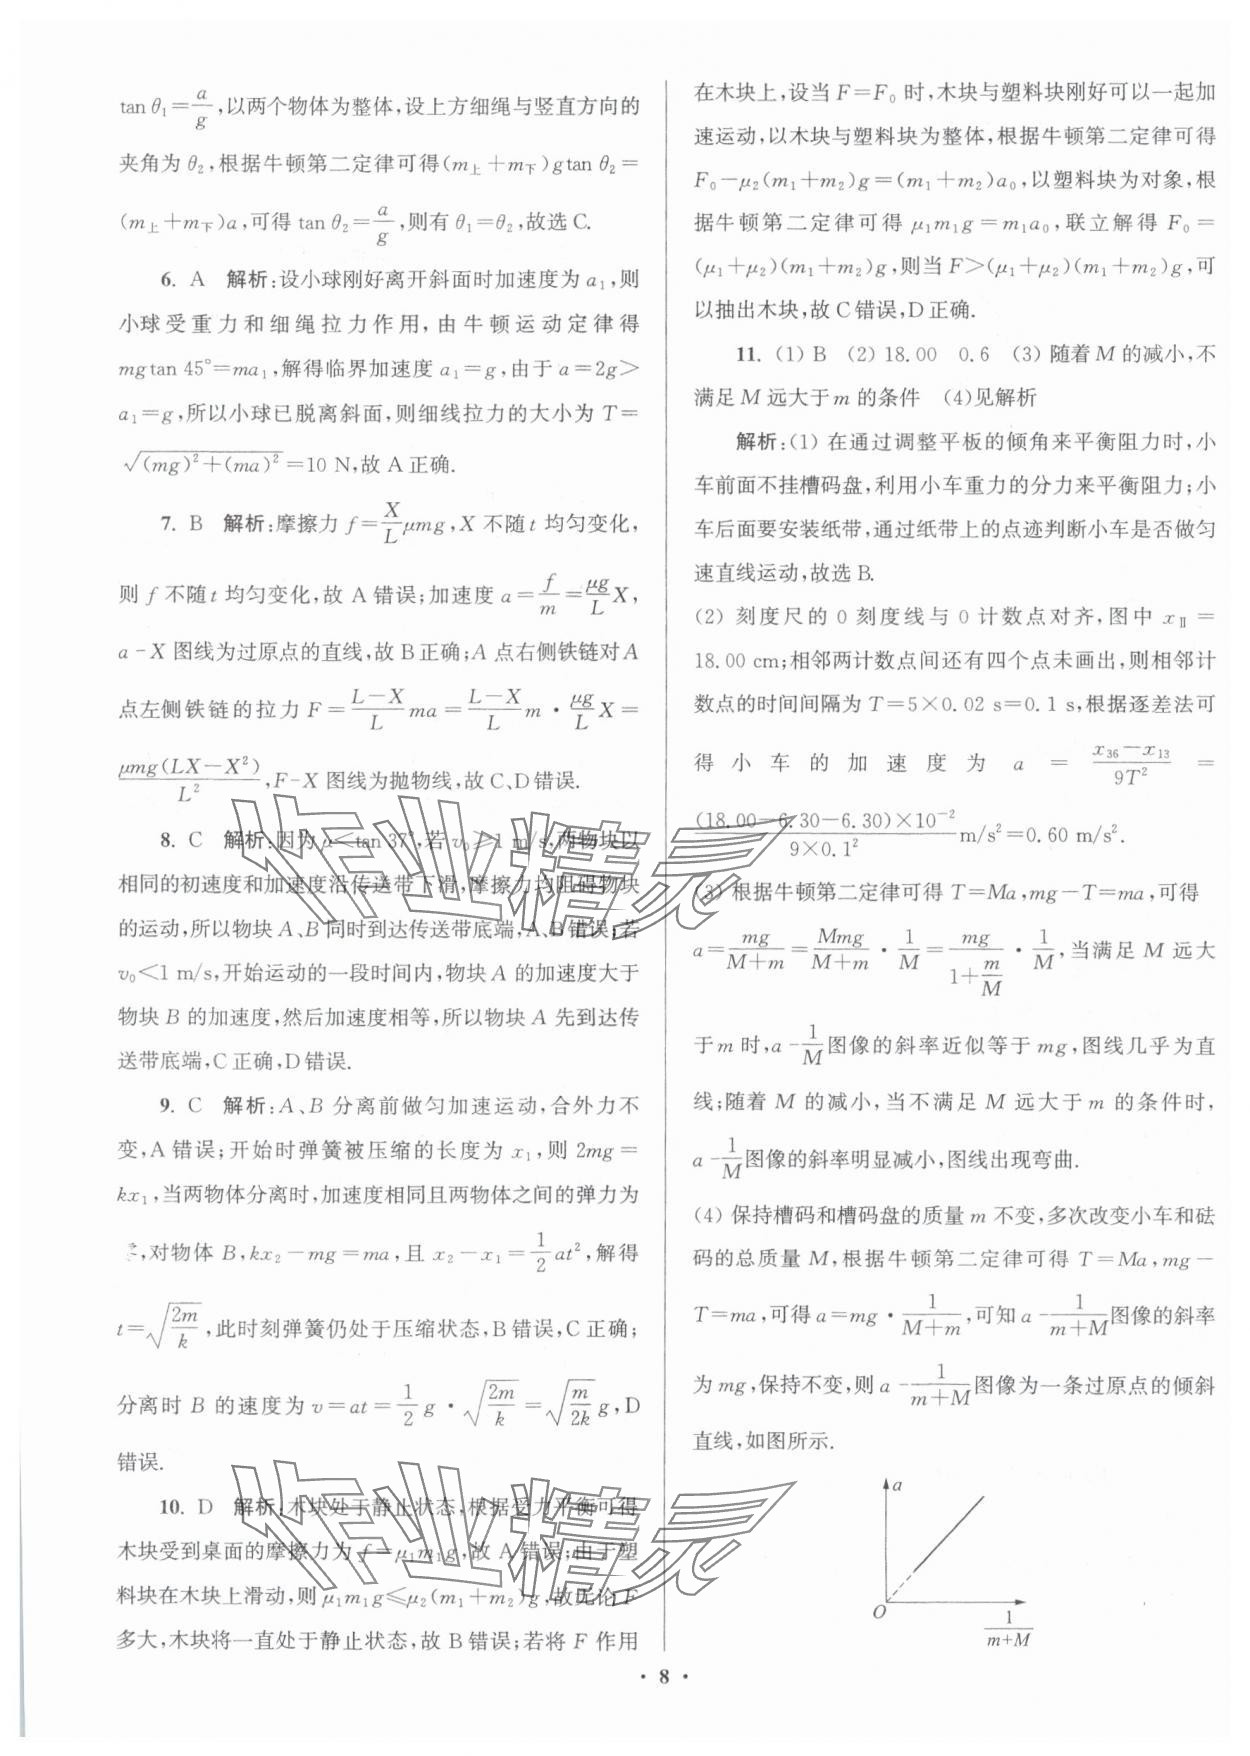 tan θ₁=a/g,以两个物体为整体,设上方细绳与竖直方向的
夹角为 θ₂,根据牛顿第二定律可得(m上+m下)gtan θ₂=
(m上+m下)a,可得 tan θ₂=a/g,则有 θ₁=θ₂,故选 C.
6. A 解析:设小球刚好离开斜面时加速度为 a₁,则
小球受重力和细绳拉力作用,由牛顿运动定律得
mgtan 45°=ma₁,解得临界加速度 a₁=g,由于 a=2g>
a₁=g,所以小球已脱离斜面,则细线拉力的大小为 T=
√((mg)²+(ma)²)=10 N,故 A 正确.
7. B 解析:摩擦力 f=X/L μmg,X 不随 t 均匀变化,
则 f 不随 t 均匀变化,故 A 错误;加速度 a=f/m=μg/L X,
a-X 图线为过原点的直线,故 B 正确;A 点右侧铁链对 A
点左侧铁链的拉力 F=(L-X)/L ma=(L-X)/L m·μg/L X=
μmg(LX-X²)/L²,F-X 图线为抛物线,故 C、D 错误.
8. C 解析:因为 μ<tan 37°,若 v₀≥1 m/s,两物块以
相同的初速度和加速度沿传送带下滑,摩擦力均阻碍物块
的运动,所以物块 A、B 同时到达传送带底端,A、B 错误;若
v₀<1 m/s,开始运动的一段时间内,物块 A 的加速度大于
物块 B 的加速度,然后加速度相等,所以物块 A 先到达传
送带底端,C 正确,D 错误.
9. C 解析:A、B 分离前做匀加速运动,合外力不
变,A 错误;开始时弹簧被压缩的长度为 x₁,则 2mg=
kx₁,当两物体分离时,加速度相同且两物体之间的弹力为
,对物体 B,kx₂-mg=ma,且 x₂-x₁=1/2 at²,解得
t=√(2m/k),此时刻弹簧仍处于压缩状态,B 错误,C 正确;
分离时 B 的速度为 v=at=1/2 g·√(2m/k)=√(m/2k) g,D
错误.
10. D 解析:木块处于静止状态,根据受力平衡可得
木块受到桌面的摩擦力为 f=μ₁m₁g,故 A 错误;由于塑
料块在木块上滑动,则 μ₁m₁g≤μ₂(m₁+m₂)g,故无论 F
多大,木块将一直处于静止状态,故 B 错误;若将 F 作用
在木块上,设当 F=F₀ 时,木块与塑料块刚好可以一起加
速运动,以木块与塑料块为整体,根据牛顿第二定律可得
F₀-μ₂(m₁+m₂)g=(m₁+m₂)a₀,以塑料块为对象,根
据牛顿第二定律可得 μ₁m₁g=m₁a₀,联立解得 F₀=
(μ₁+μ₂)(m₁+m₂)g,则当 F>(μ₁+μ₂)(m₁+m₂)g,可
以抽出木块,故 C 错误,D 正确.
11. (1) B (2) 18.00 0.6 (3) 随着 M 的减小,不
满足 M 远大于 m 的条件 (4)见解析
解析:(1) 在通过调整平板的倾角来平衡阻力时,小
车前面不挂槽码盘,利用小车重力的分力来平衡阻力;小
车后面要安装纸带,通过纸带上的点迹判断小车是否做匀
速直线运动,故选 B.
(2) 刻度尺的 0 刻度线与 0 计数点对齐,图中 xⅡ=
18.00 cm;相邻两计数点间还有四个点未画出,则相邻计
数点的时间间隔为 T=5×0.02 s=0.1 s,根据逐差法可
得小车的加速度为 a=(x₃₆-x₁₃)/9T²=
(18.00-6.30-6.30)×10⁻²/(9×0.1²) m/s²=0.60 m/s².
(3) 根据牛顿第二定律可得 T=Ma,mg-T=ma,可得
a=mg/(M+m)=Mmg/(M+m)·1/M=mg/(1+m/M)·1/M,当满足 M 远大
于 m 时,a-1/M图像的斜率近似等于 mg,图线几乎为直
线;随着 M 的减小,当不满足 M 远大于 m 的条件时,
a-1/M图像的斜率明显减小,图线出现弯曲.
(4) 保持槽码和槽码盘的质量 m 不变,多次改变小车和砝
码的总质量 M,根据牛顿第二定律可得 T=Ma,mg-
T=ma,可得 a=mg·1/(M+m),可知 a-1/(m+M)图像的斜率
为 mg,保持不变,则 a-1/(m+M)图像为一条过原点的倾斜
直线,如图所示.
a
O
1/(m+M)
·8·
作业精灵
作业精灵